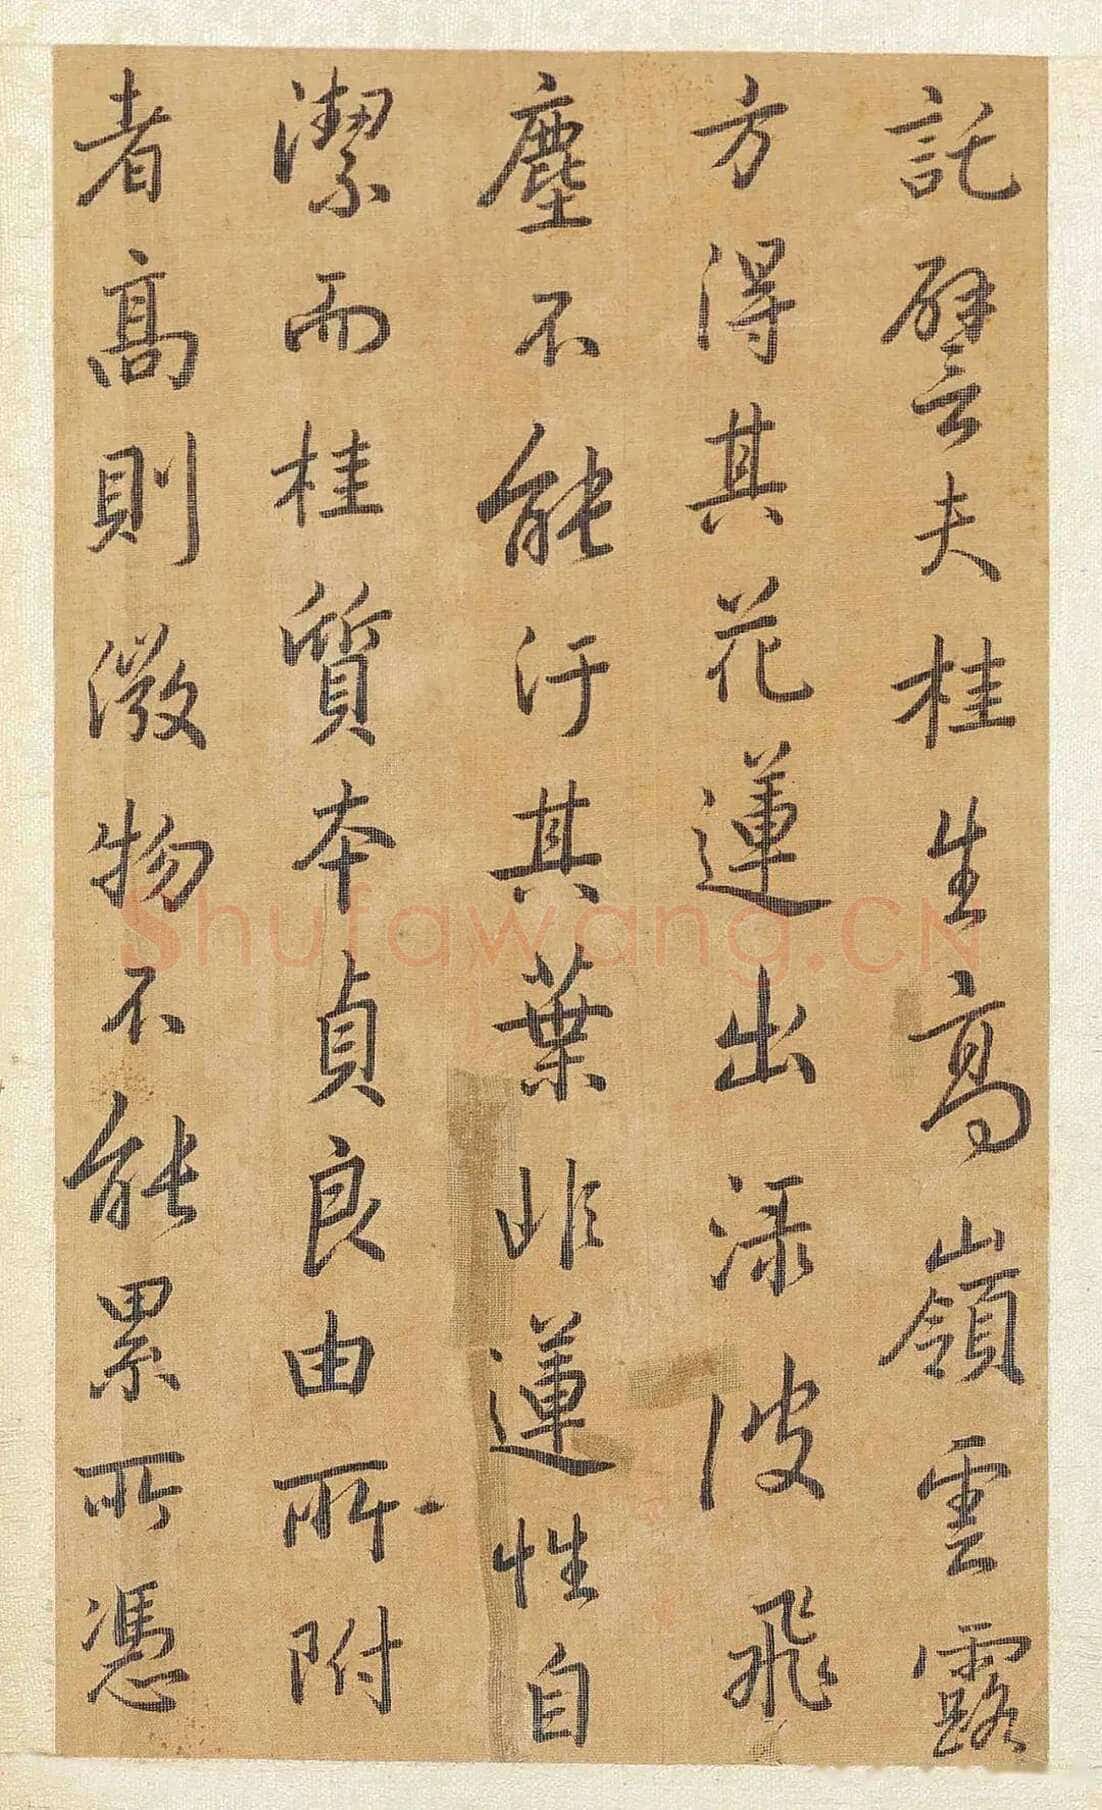 託譬夫桂生高嶺雲露
方得其花蓮出淥波飛
塵不能汙其葉非蓮性自
潔而桂質本貞良由所附
者高則微物不能累所憑
Shufawang.CN